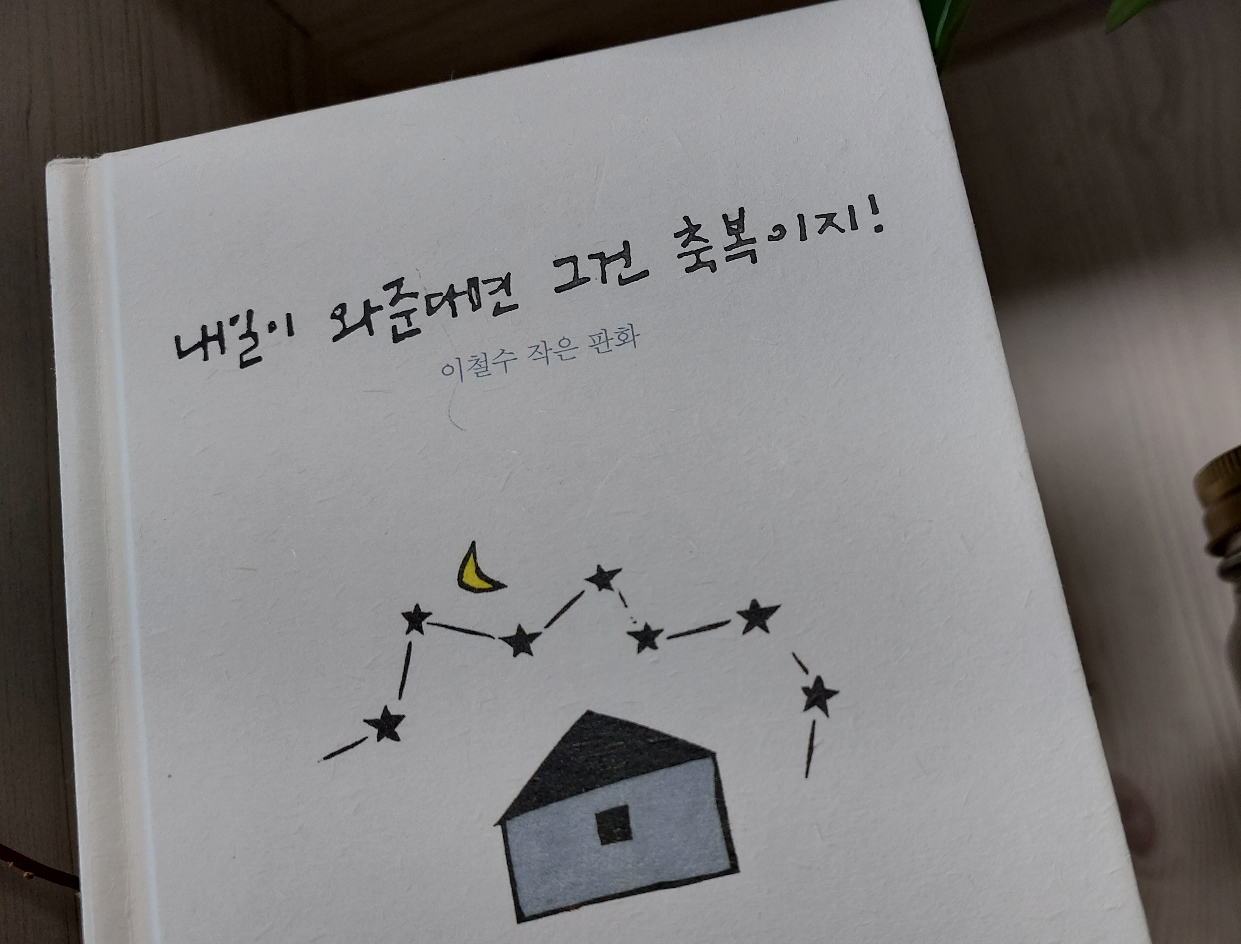 내일이 와준다면 그건 축복이지!
이철수 작은 판화